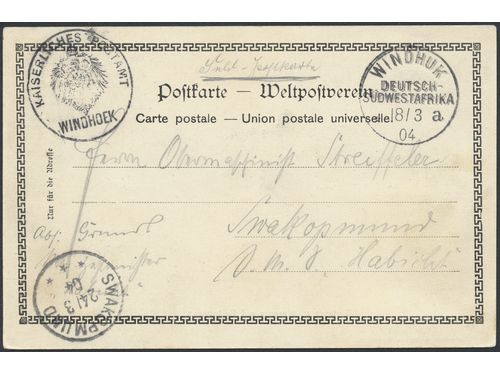 KAISERLICHES POSTAMT
WINDHOEK
Feld-Postkarte
Postkarte — Weltpostverein
Carte postale — Union postale universelle
WINDHUK
DEUTSCH-
SÜDWESTAFRIKA
18/3 a
04
Nur für die Adresse
Herrn Obermaschinist Streiffeler
Swakopmund
S.M.S. Habicht
Abs:
SWAKOPMUND
24/3
04